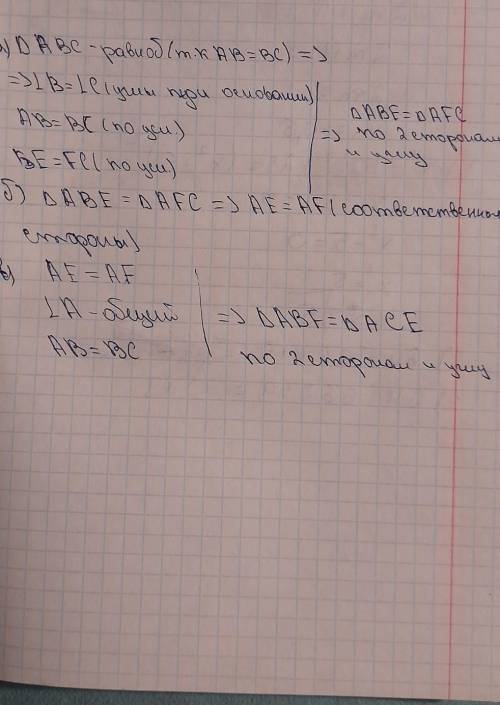 а) ΔABC - равноб (т.к AB=BC) =>
=> ∠B=∠C (углы при основании)
AB=BC (по усл.)
BE=FC (по усл)
ΔABE=ΔAFC
=> по 2 сторонам
и углу
б) ΔABE = ΔAFC => AE=AF (соответственные
стороны)
в) AE=AF
∠A - общий
AB=BC
=> ΔABF=ΔACE
по 2 сторонам и углу